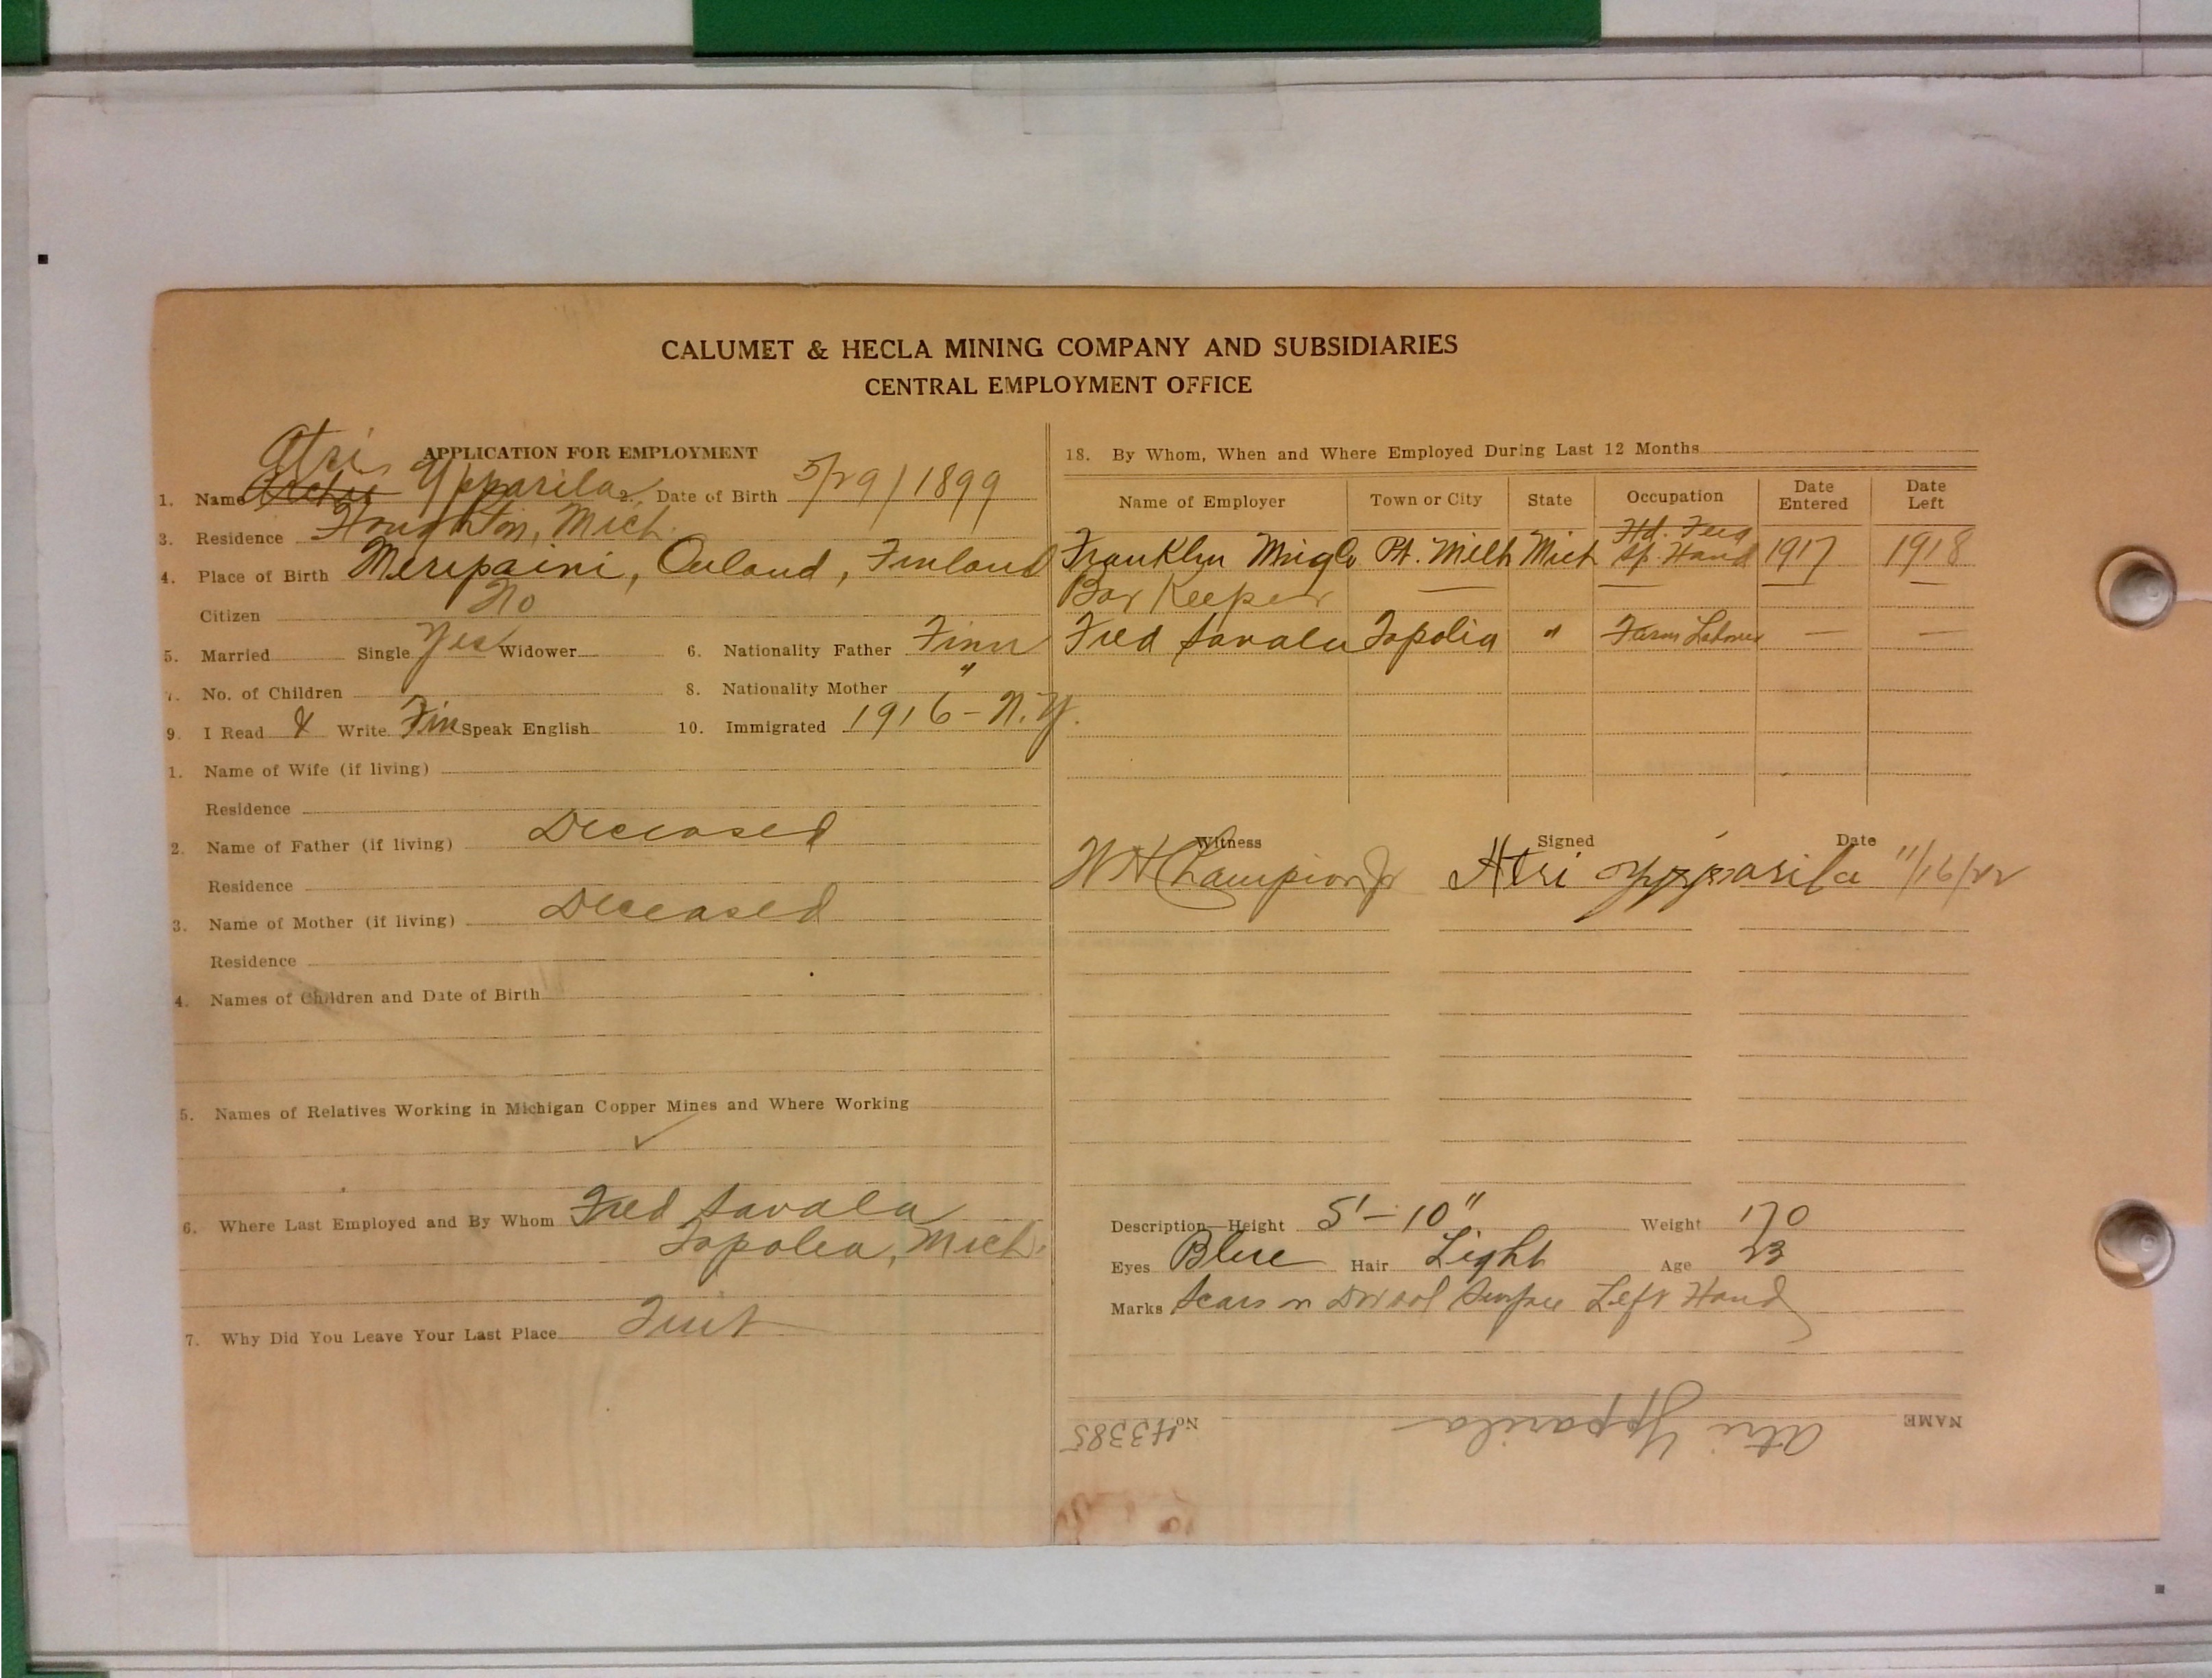 CALUMET & HECLA MINING COMPANY AND SUBSIDIARIES
CENTRAL EMPLOYMENT OFFICE
APPLICATION FOR EMPLOYMENT
Atri
1. Name Archie Ypparila 2. Date of Birth 5/29/1899
3. Residence Houghton, Mich.
4. Place of Birth Meripaini, Ouland, Finland
Citizen No
5. Married Single Yes Widower 6. Nationality Father Finn
7. No. of Children 8. Nationality Mother "
9. I Read & Write Fin Speak English 10. Immigrated 1916 - N.Y.
1. Name of Wife (if living)
Residence
2. Name of Father (if living) Deceased
Residence
3. Name of Mother (if living) Deceased
Residence
4. Names of Children and Date of Birth
5. Names of Relatives Working in Michigan Copper Mines and Where Working
6. Where Last Employed and By Whom Fred Savala
Topolia, Mich.
7. Why Did You Leave Your Last Place Quit
18. By Whom, When and Where Employed During Last 12 Months
Name of Employer Town or City State Occupation Date Entered Date Left
Franklin Mng Co Pt. Mills Mich Sp. Hand 1917 1918
Bar Keeper — — — —
Fred Savala Topolia " Farm Laborer — —
Witness Signed Date
W H Champion Jr Atri Ypparila 11/16/22
Description—Height 5'-10" Weight 170
Eyes Blue Hair Light Age 23
Marks Scars on Dorsal Surface Left Hand
NAME Atri Ypparila No. H3385